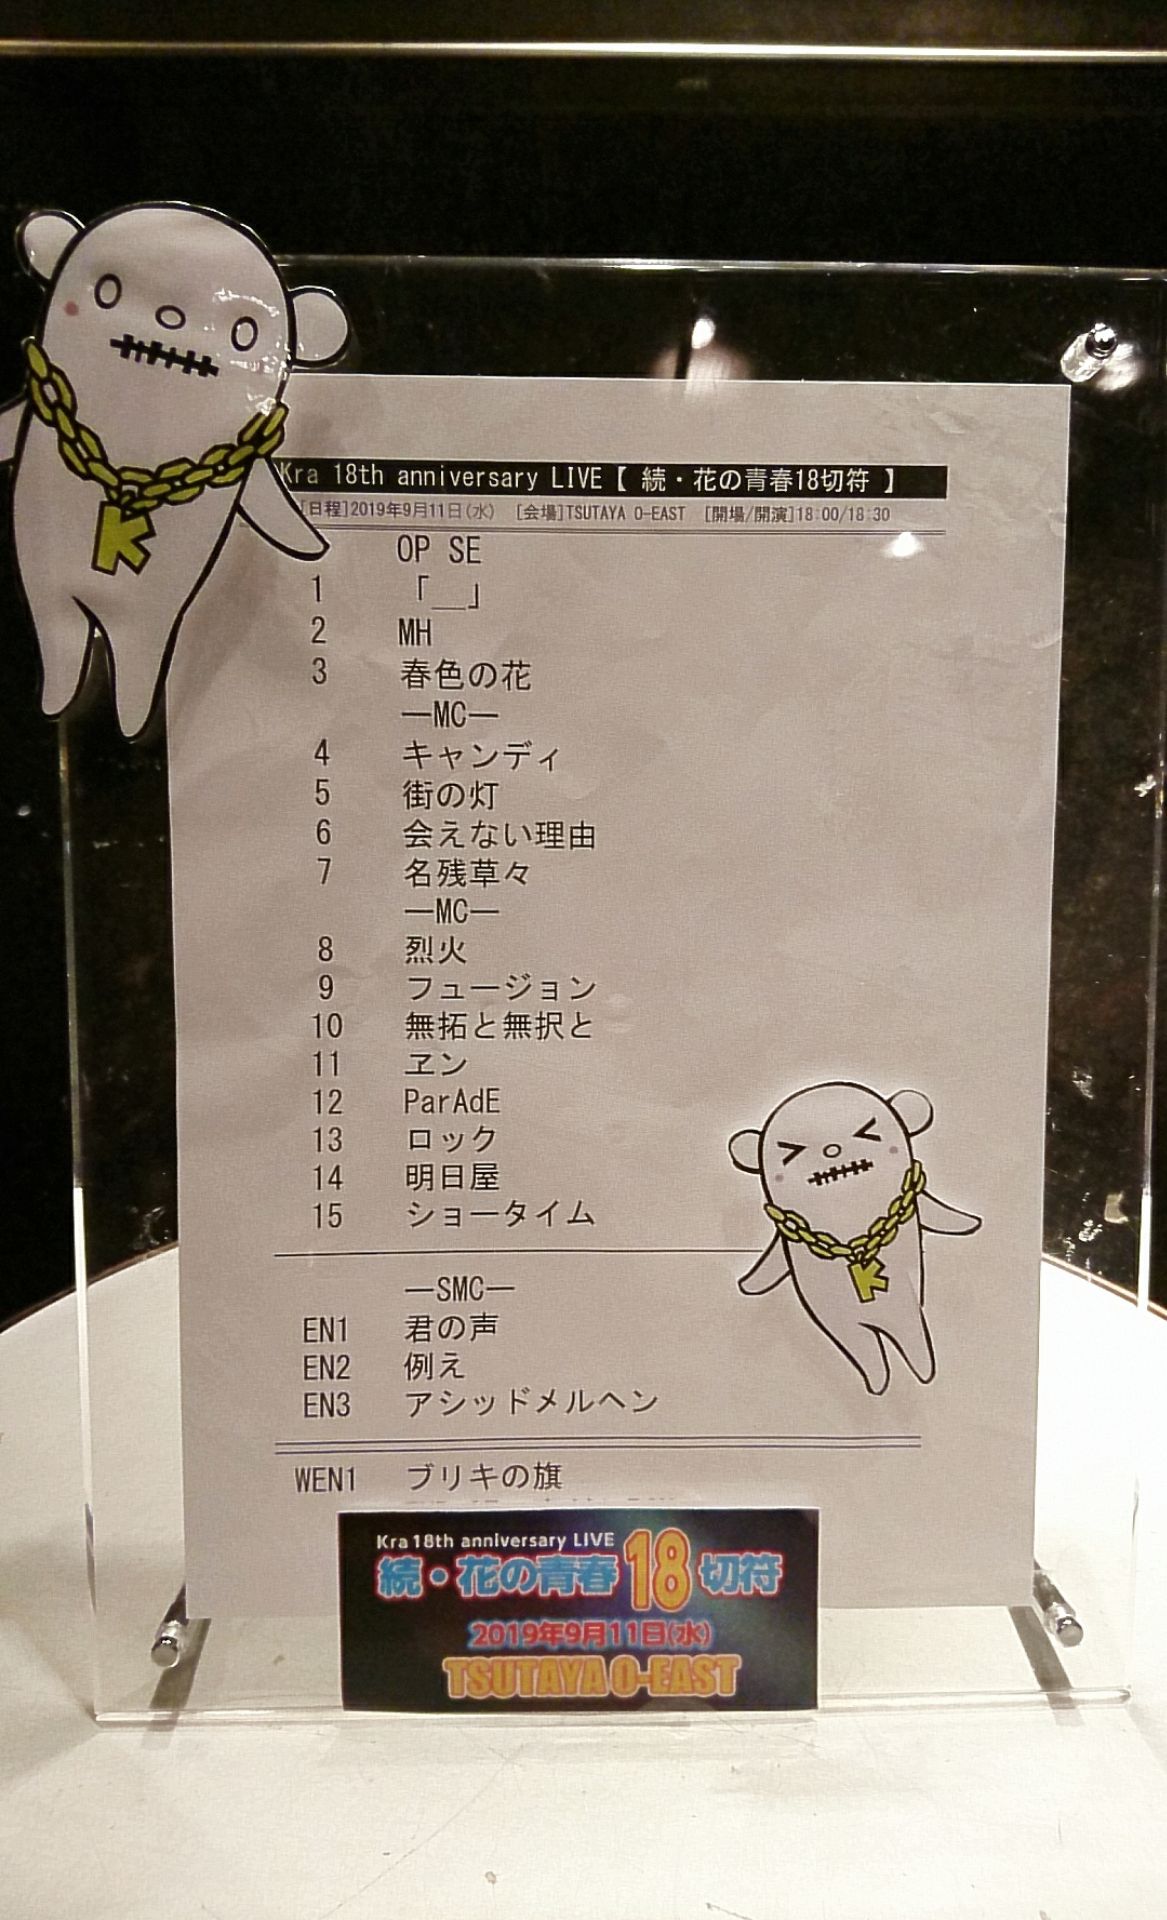 Kra 18th anniversary LIVE【 続・花の青春18切符 】
[日程]2019年9月11日(水) [会場]TSUTAYA O-EAST [開場/開演]18:00/18:30
OP SE
1 「＿」
2 MH
3 春色の花
―MC―
4 キャンディ
5 街の灯
6 会えない理由
7 名残草々
―MC―
8 烈火
9 フュージョン
10 無拓と無択と
11 ヱン
12 ParAdE
13 ロック
14 明日屋
15 ショータイム
―SMC―
EN1 君の声
EN2 例え
EN3 アシッドメルヘン
WEN1 ブリキの旗
Kra 18th anniversary LIVE
続・花の青春18切符
2019年9月11日(水)
TSUTAYA O-EAST
K
K